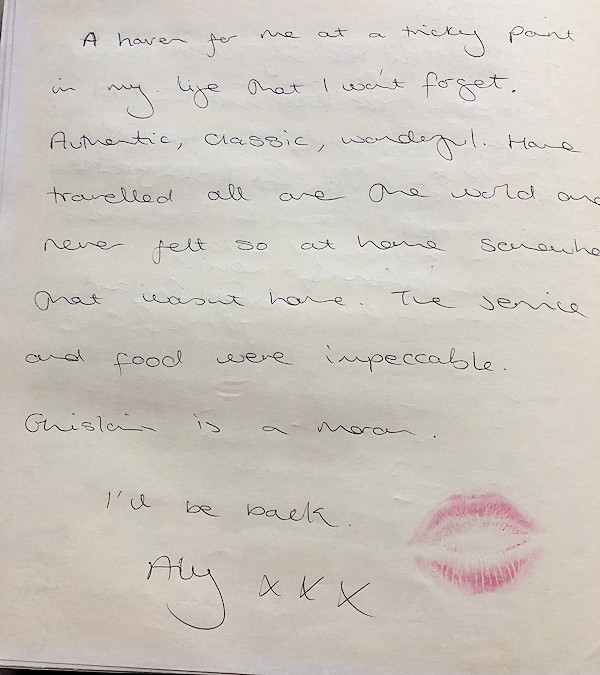 A haven for me at a tricky point
in my life that I won't forget.
Authentic, classic, wonderful. Have
travelled all over the world and
never felt so at home somewhe
that wasn't home. The service
and food were impeccable.
Ghislain is a moron.
I'll be back.
Aly xxx